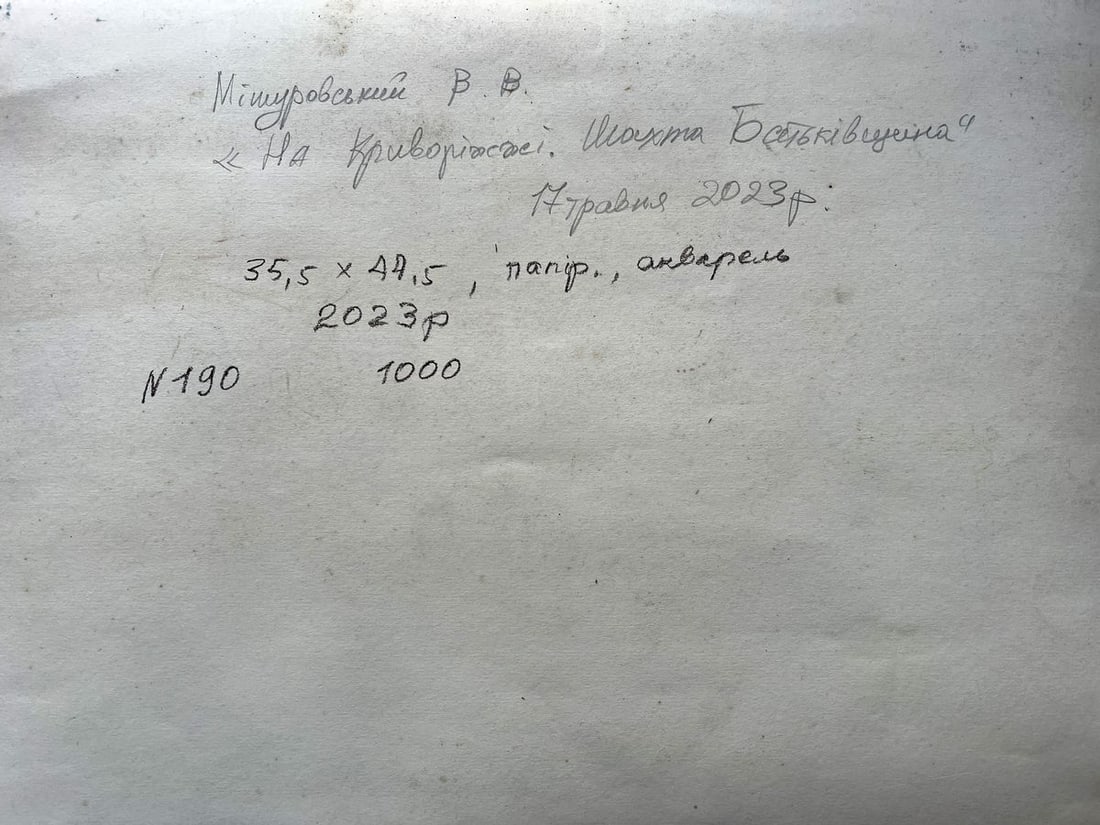 Мішуровський В. В.
« На Криворіжжі. Шахта Батьківщина"
17 травня 2023р.
35,5 × 44,5 , папір., акварель
2023р
N 190 1000